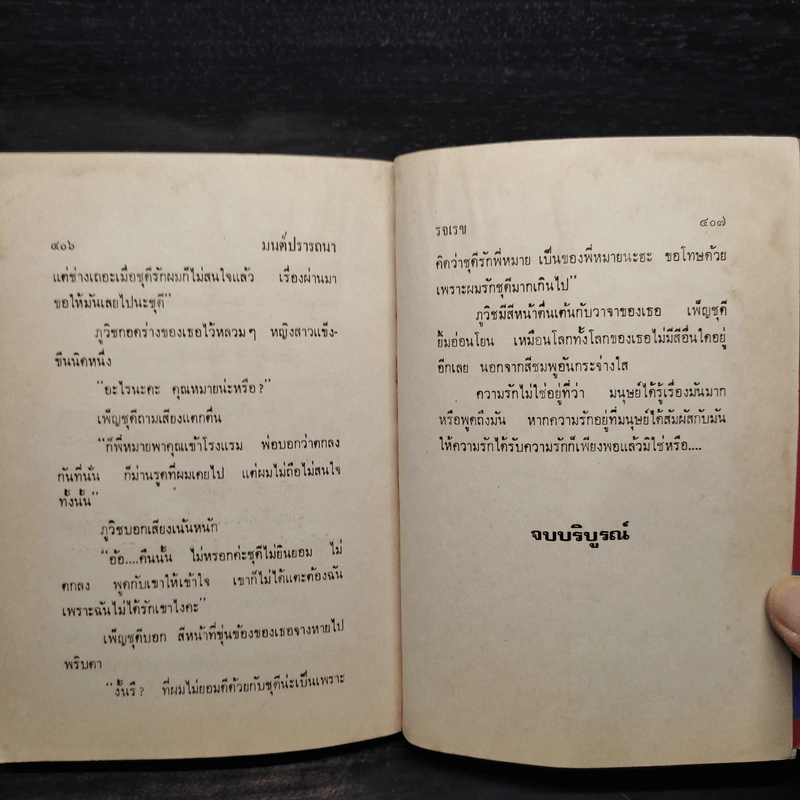 ๔๐๖ มนต์ปรารถนา
แต่ช่างเถอะเมื่อชุดีรักผมก็ไม่สนใจแล้ว เรื่องผ่านมา
ขอให้มันเลยไปนะชุดี”
ภูวิชกอดร่างของเธอไว้หลวมๆ หญิงสาวแข็ง-
ขืนนิดหนึ่ง
“อะไรนะคะ คุณหมายน่ะหรือ?”
เพ็ญชุดีถามเสียงแตกตื่น
“ก็พี่หมายพาคุณเข้าโรงแรม พ่อบอกว่าตกลง
กันที่นั่น ก็ม่านรูดที่ผมเคยไป แต่ผมไม่ถือไม่สนใจ
ทั้งนั้น”
ภูวิชบอกเสียงเน้นหนัก
“อ้อ....คืนนั้น ไม่หรอกค่ะชุดีไม่ยินยอม ไม่
ตกลง พูดกับเขาให้เข้าใจ เขาก็ไม่ได้แตะต้องฉัน
เพราะฉันไม่ได้รักเขาไงคะ”
เพ็ญชุดีบอก สีหน้าที่ขุ่นข้องของเธอจางหายไป
พริบตา
“งั้นรึ? ที่ผมไม่ยอมดีด้วยกับชุดีน่ะเป็นเพราะ
รจเรข ๔๐๗
คิดว่าชุดีรักพี่หมาย เป็นของพี่หมายนะฮะ ขอโทษด้วย
เพราะผมรักชุดีมากเกินไป”
ภูวิชมีสีหน้าตื่นเต้นกับวาจาของเธอ เพ็ญชุดี
ยิ้มอ่อนโยน เหมือนโลกทั้งโลกของเธอไม่มีสีอื่นใดอยู่
อีกเลย นอกจากสีชมพูอันกระจ่างใส
ความรักไม่ใช่อยู่ที่ว่า มนุษย์ได้รู้เรื่องมันมาก
หรือพูดถึงมัน หากความรักอยู่ที่มนุษย์ได้สัมผัสกับมัน
ให้ความรักได้รับความรักก็เพียงพอแล้วมิใช่หรือ....
จบบริบูรณ์